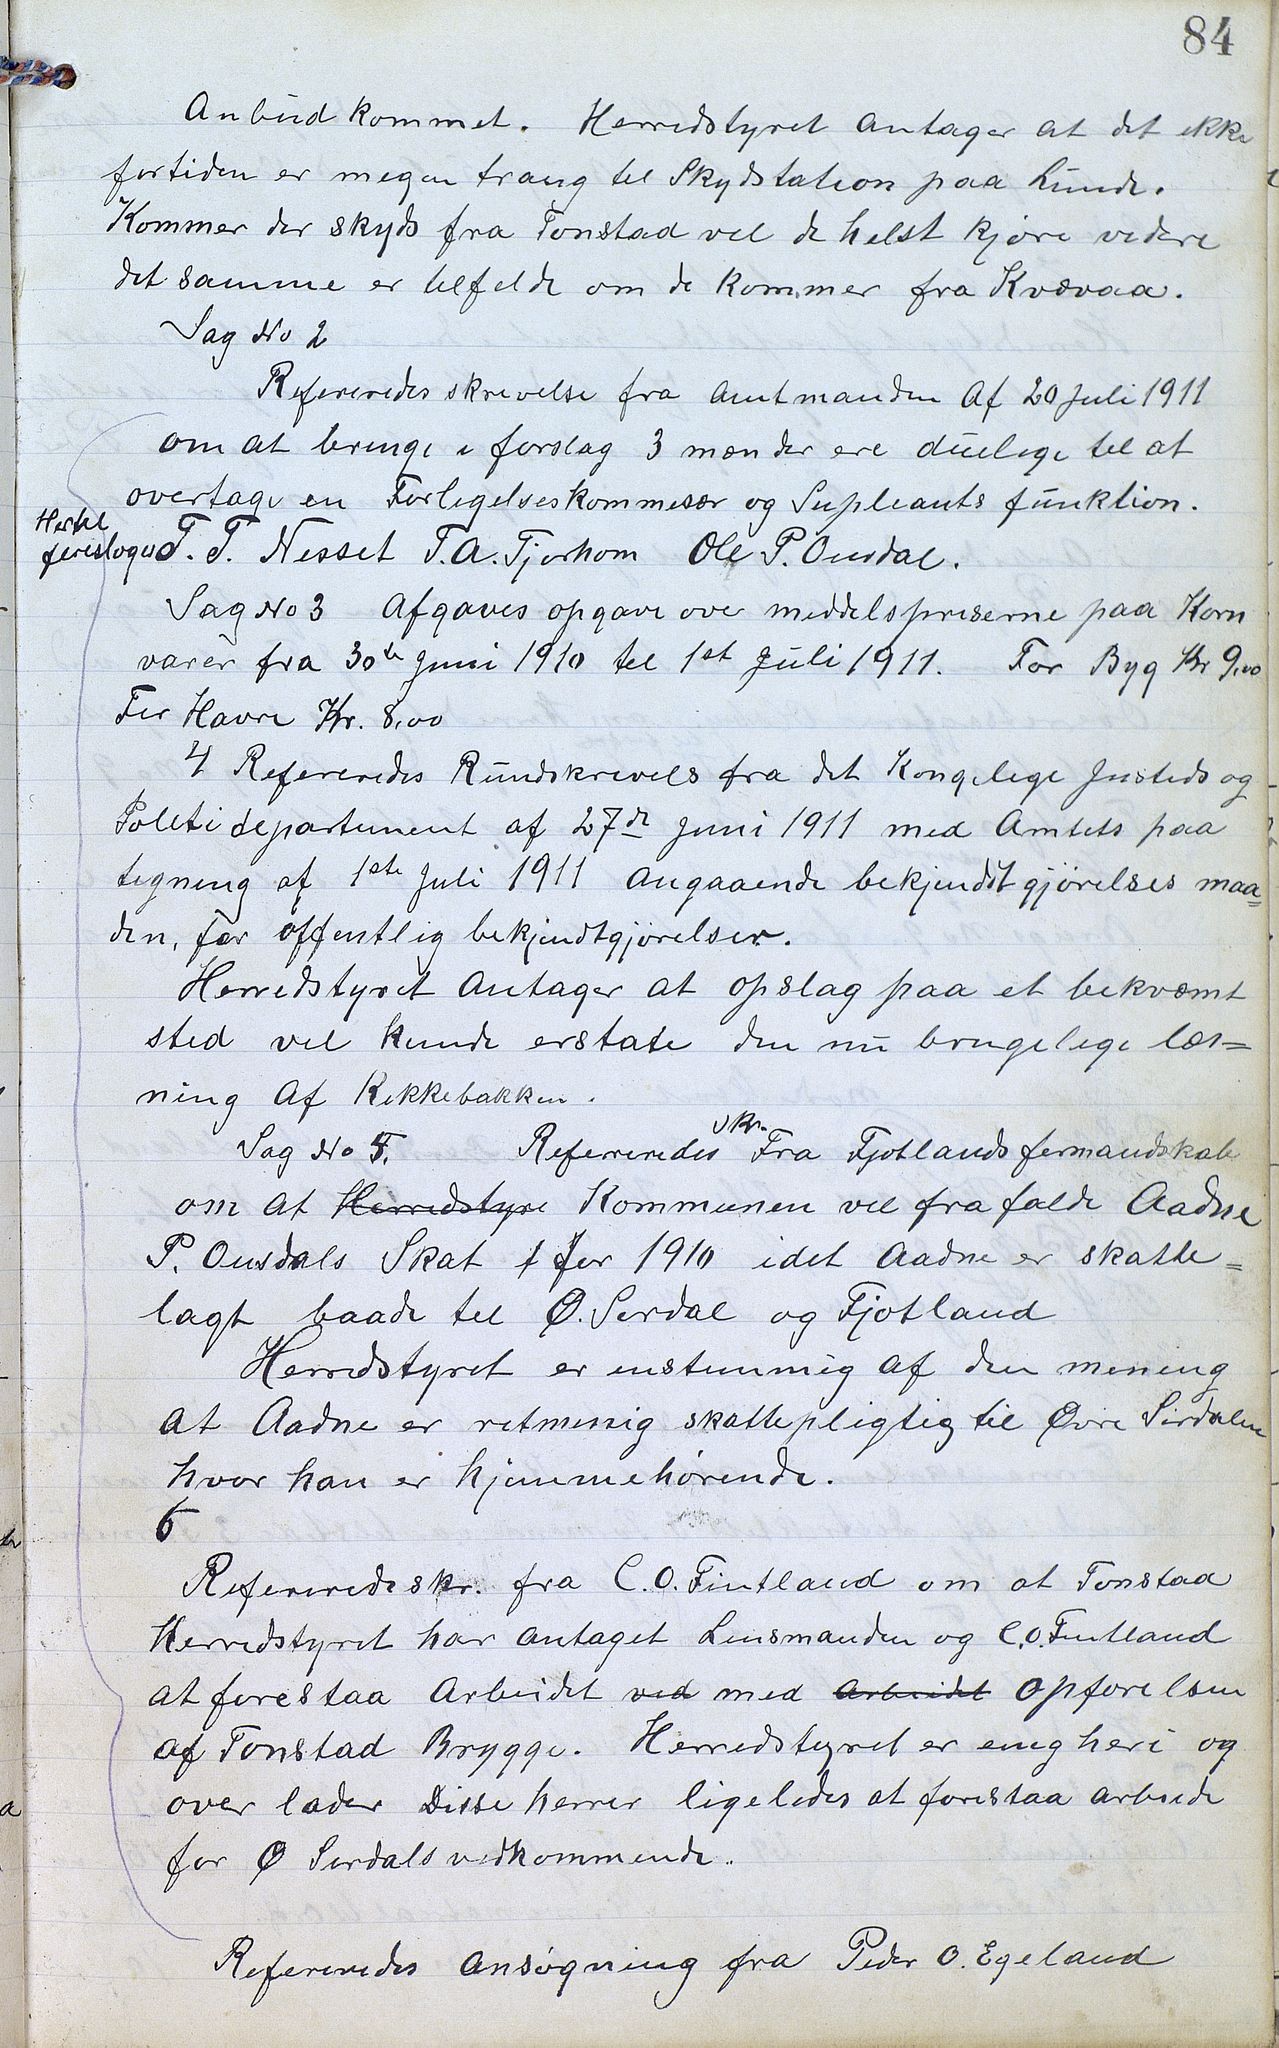 84
Anbud kommet. Herredstyret antager at det ikke
fortiden er megen trang til Skydstation paa Lunde.
Kommer der skyds fra Tonstad vil de helst kjøre videre
det samme er tilfelde om de kommer fra Kvævaa.
Sag No 2
Refereredes skrivelse fra amtmanden af 20 Juli 1911
om at bringe i forslag 3 mænder ere duelige til at
overtage en Forligelseskommisær og Supleants funktion.
Hertil
foresloges T. T. Nesset T. A. Tjorhom Ole P. Ousdal.
Sag No 3 Afgaves opgave over meddelspriserne paa Korn
varer fra 30te Juni 1910 til 1st Juli 1911. For Byg Kr 9,00
For Havre Kr. 8,00
4 Refereredes Rundskrivels fra det Kongelige Justeds og
Politidepartement af 27de Juni 1911 med Amtets paa
tegning af 1ste Juli 1911 angaaende bekjendtgjørelses maa=
den, før offentlig bekjendtgjørelser.
Herredstyret antager at opslag paa et bekvæmt
sted vil kunde erstate den nu brugelige læs=
ning af Kirkkebakken.
Sag No 5. Refereredes skr. Fra Fjotlands formandskab
om at Herredstyre Kommunen vil frafalde Aadne
P. Ousdals Skat f for 1910 idet Aadne er skatte=
lagt baade til Ø. Serdal og Fjotland
Herredstyret er enstemmig af den mening
at Aadne er retmessig skattepligtig til Øvre Sirdalen
hvor han er hjemmehørende.
6
Refereredes skr. fra C. O. Fintland om at Tonstad
Herredstyret har antaget Lensmanden og C. O. Fintland
at forestaa Arbeidet ved med Arbeidet opførelsen
af Tonstad Brygge. Herredstyret er enig heri og
over lader Disse herrer ligeledes at forestaa arbeide
for Ø Serdals vedkommende.
Refereredes ansøgning fra Peder O. Egeland